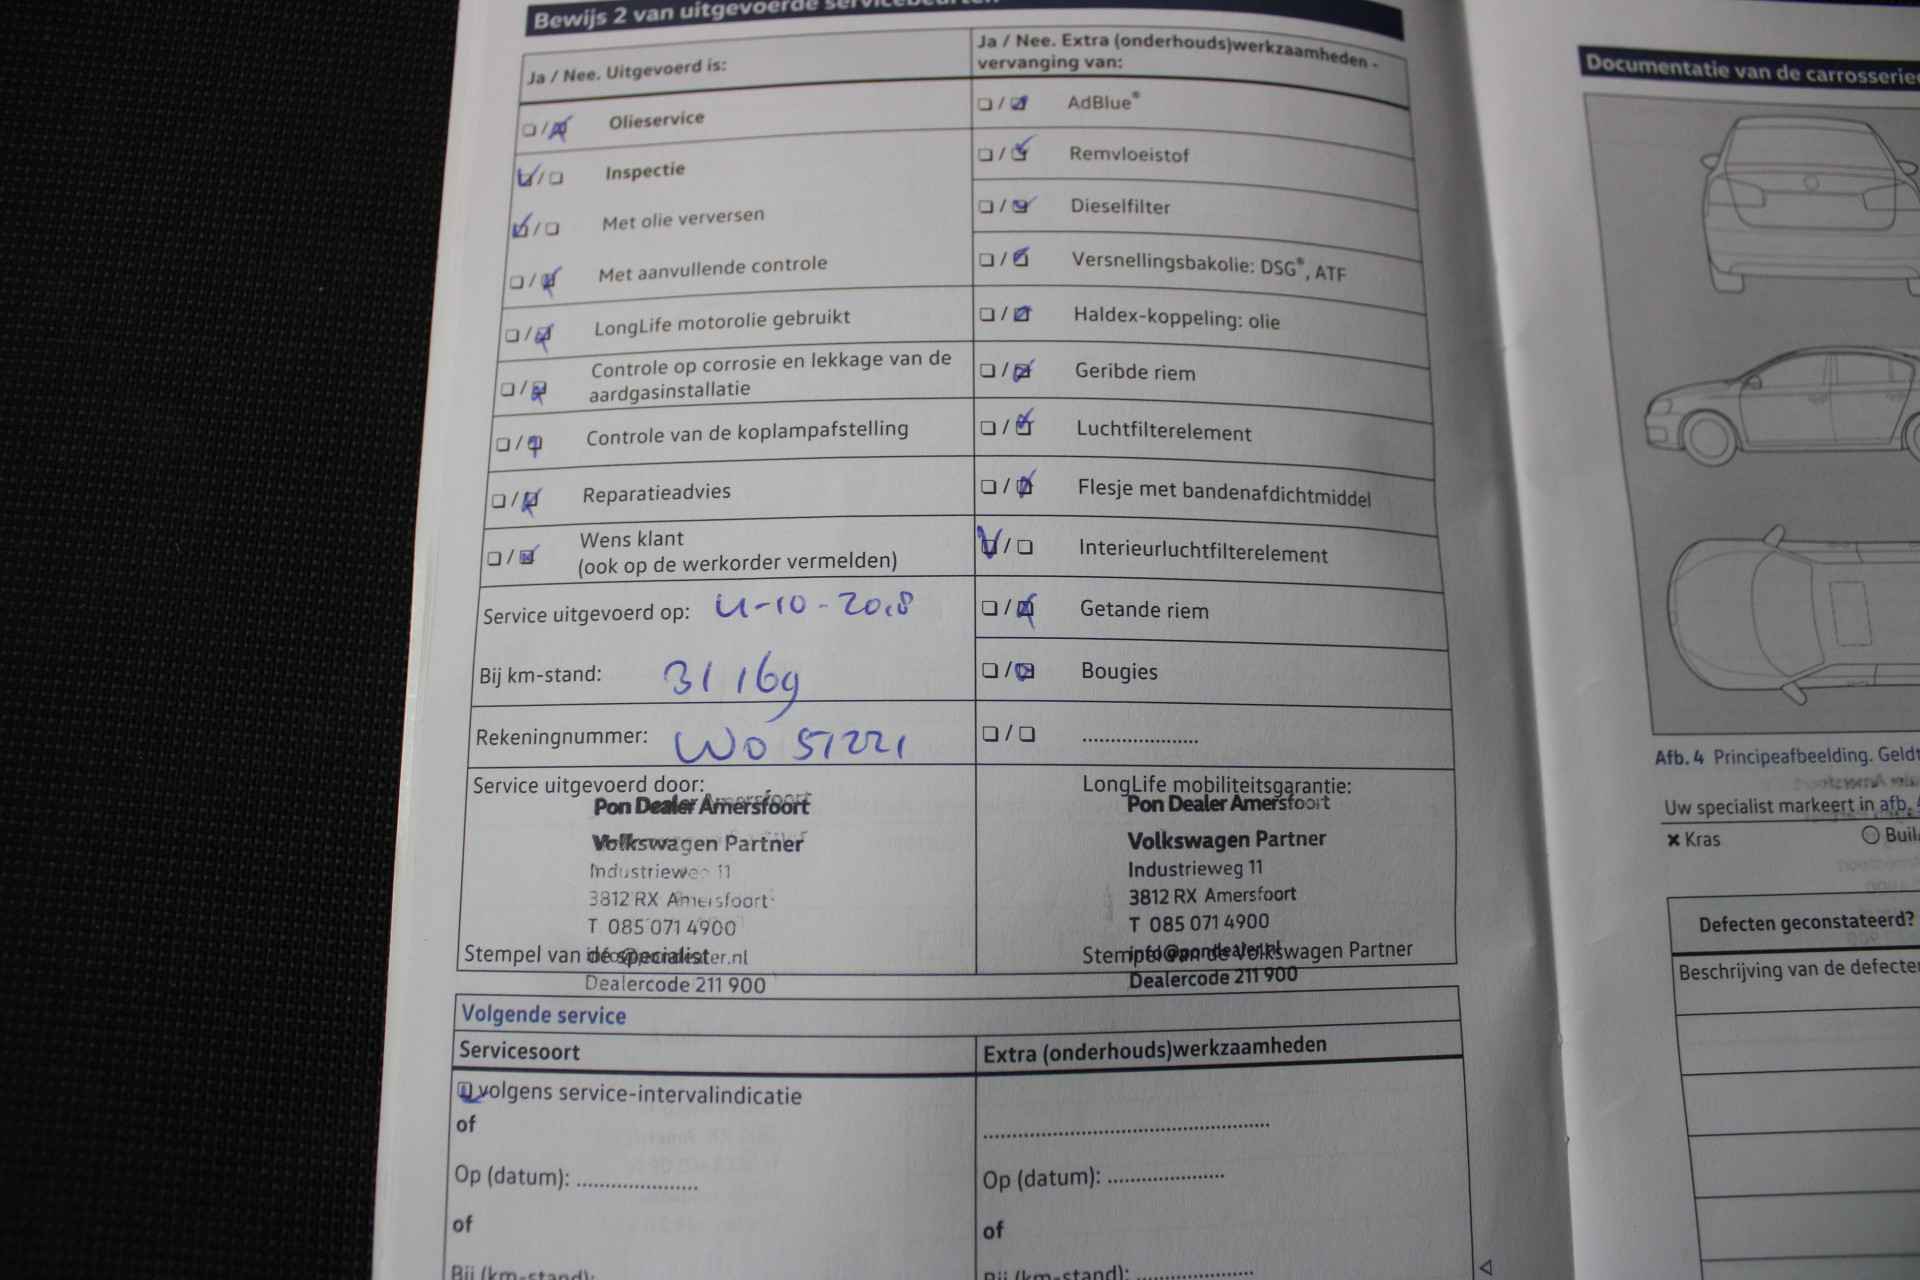 Bewijs 2 van uitgevoerde servicebeurten
Ja / Nee. Uitgevoerd is:
Olieservice
Inspectie
Met olie verversen
Met aanvullende controle
LongLife motorolie gebruikt
Controle op corrosie en lekkage van de
aardgasinstallatie
Controle van de koplampafstelling
Reparatieadvies
Wens klant
(ook op de werkorder vermelden)
Service uitgevoerd op:
Bij km-stand: 31 169
Rekeningnummer: WO 51221
Service uitgevoerd door:
Pon Dealer Amersfoort
Volkswagen Partner
Industrieweg 11
3812 RX Amersfoort
T 085 071 4900
Stempel van de specialist
Dealercode 211 900
Ja / Nee. Extra (onderhouds)werkzaamheden -
vervanging van:
AdBlue®
Remvloeistof
Dieselfilter
Versnellingsbakolie: DSG®, ATF
Haldex-koppeling: olie
Geribde riem
Luchtfilterelement
Flesje met bandenafdichtmiddel
Interieurluchtfilterelement
Getande riem
Bougies
....................
LongLife mobiliteitsgarantie:
Pon Dealer Amersfoort
Volkswagen Partner
Industrieweg 11
3812 RX Amersfoort
T 085 071 4900
info@pondealer.nl
Stempel van de Volkswagen Partner
Dealercode 211 900
Volgende service
Servicesoort
volgens service-intervalindicatie
of
Op (datum): .....................
of
Bij (km-stand):
Extra (onderhouds)werkzaamheden
..................................................
Op (datum): ....................
of
Bij (km-stand): ....................
Documentatie van de carrosserie
Afb. 4 Principeafbeelding. Geldt
Uw specialist markeert in afb.
× Kras
Defecten geconstateerd?
Beschrijving van de defecten